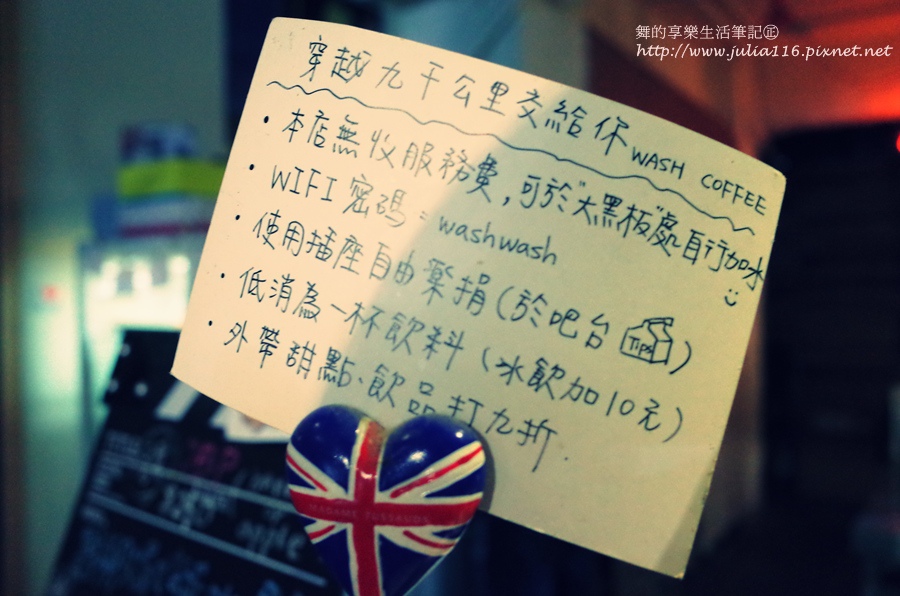 舞的享樂生活筆記㊣
http://www.julia116.pixnet.net
穿越九千公里交給你 WASH COFFEE
• 本店無收服務費，可於"大黑板"處自行加水
• WIFI 密碼：washwash
• 使用插座自由樂捐（於吧台 TIPS）
• 低消為一杯飲料（冰飲加10元）
• 外帶甜點、飲品打九折.
MADAME TUSSAUDS